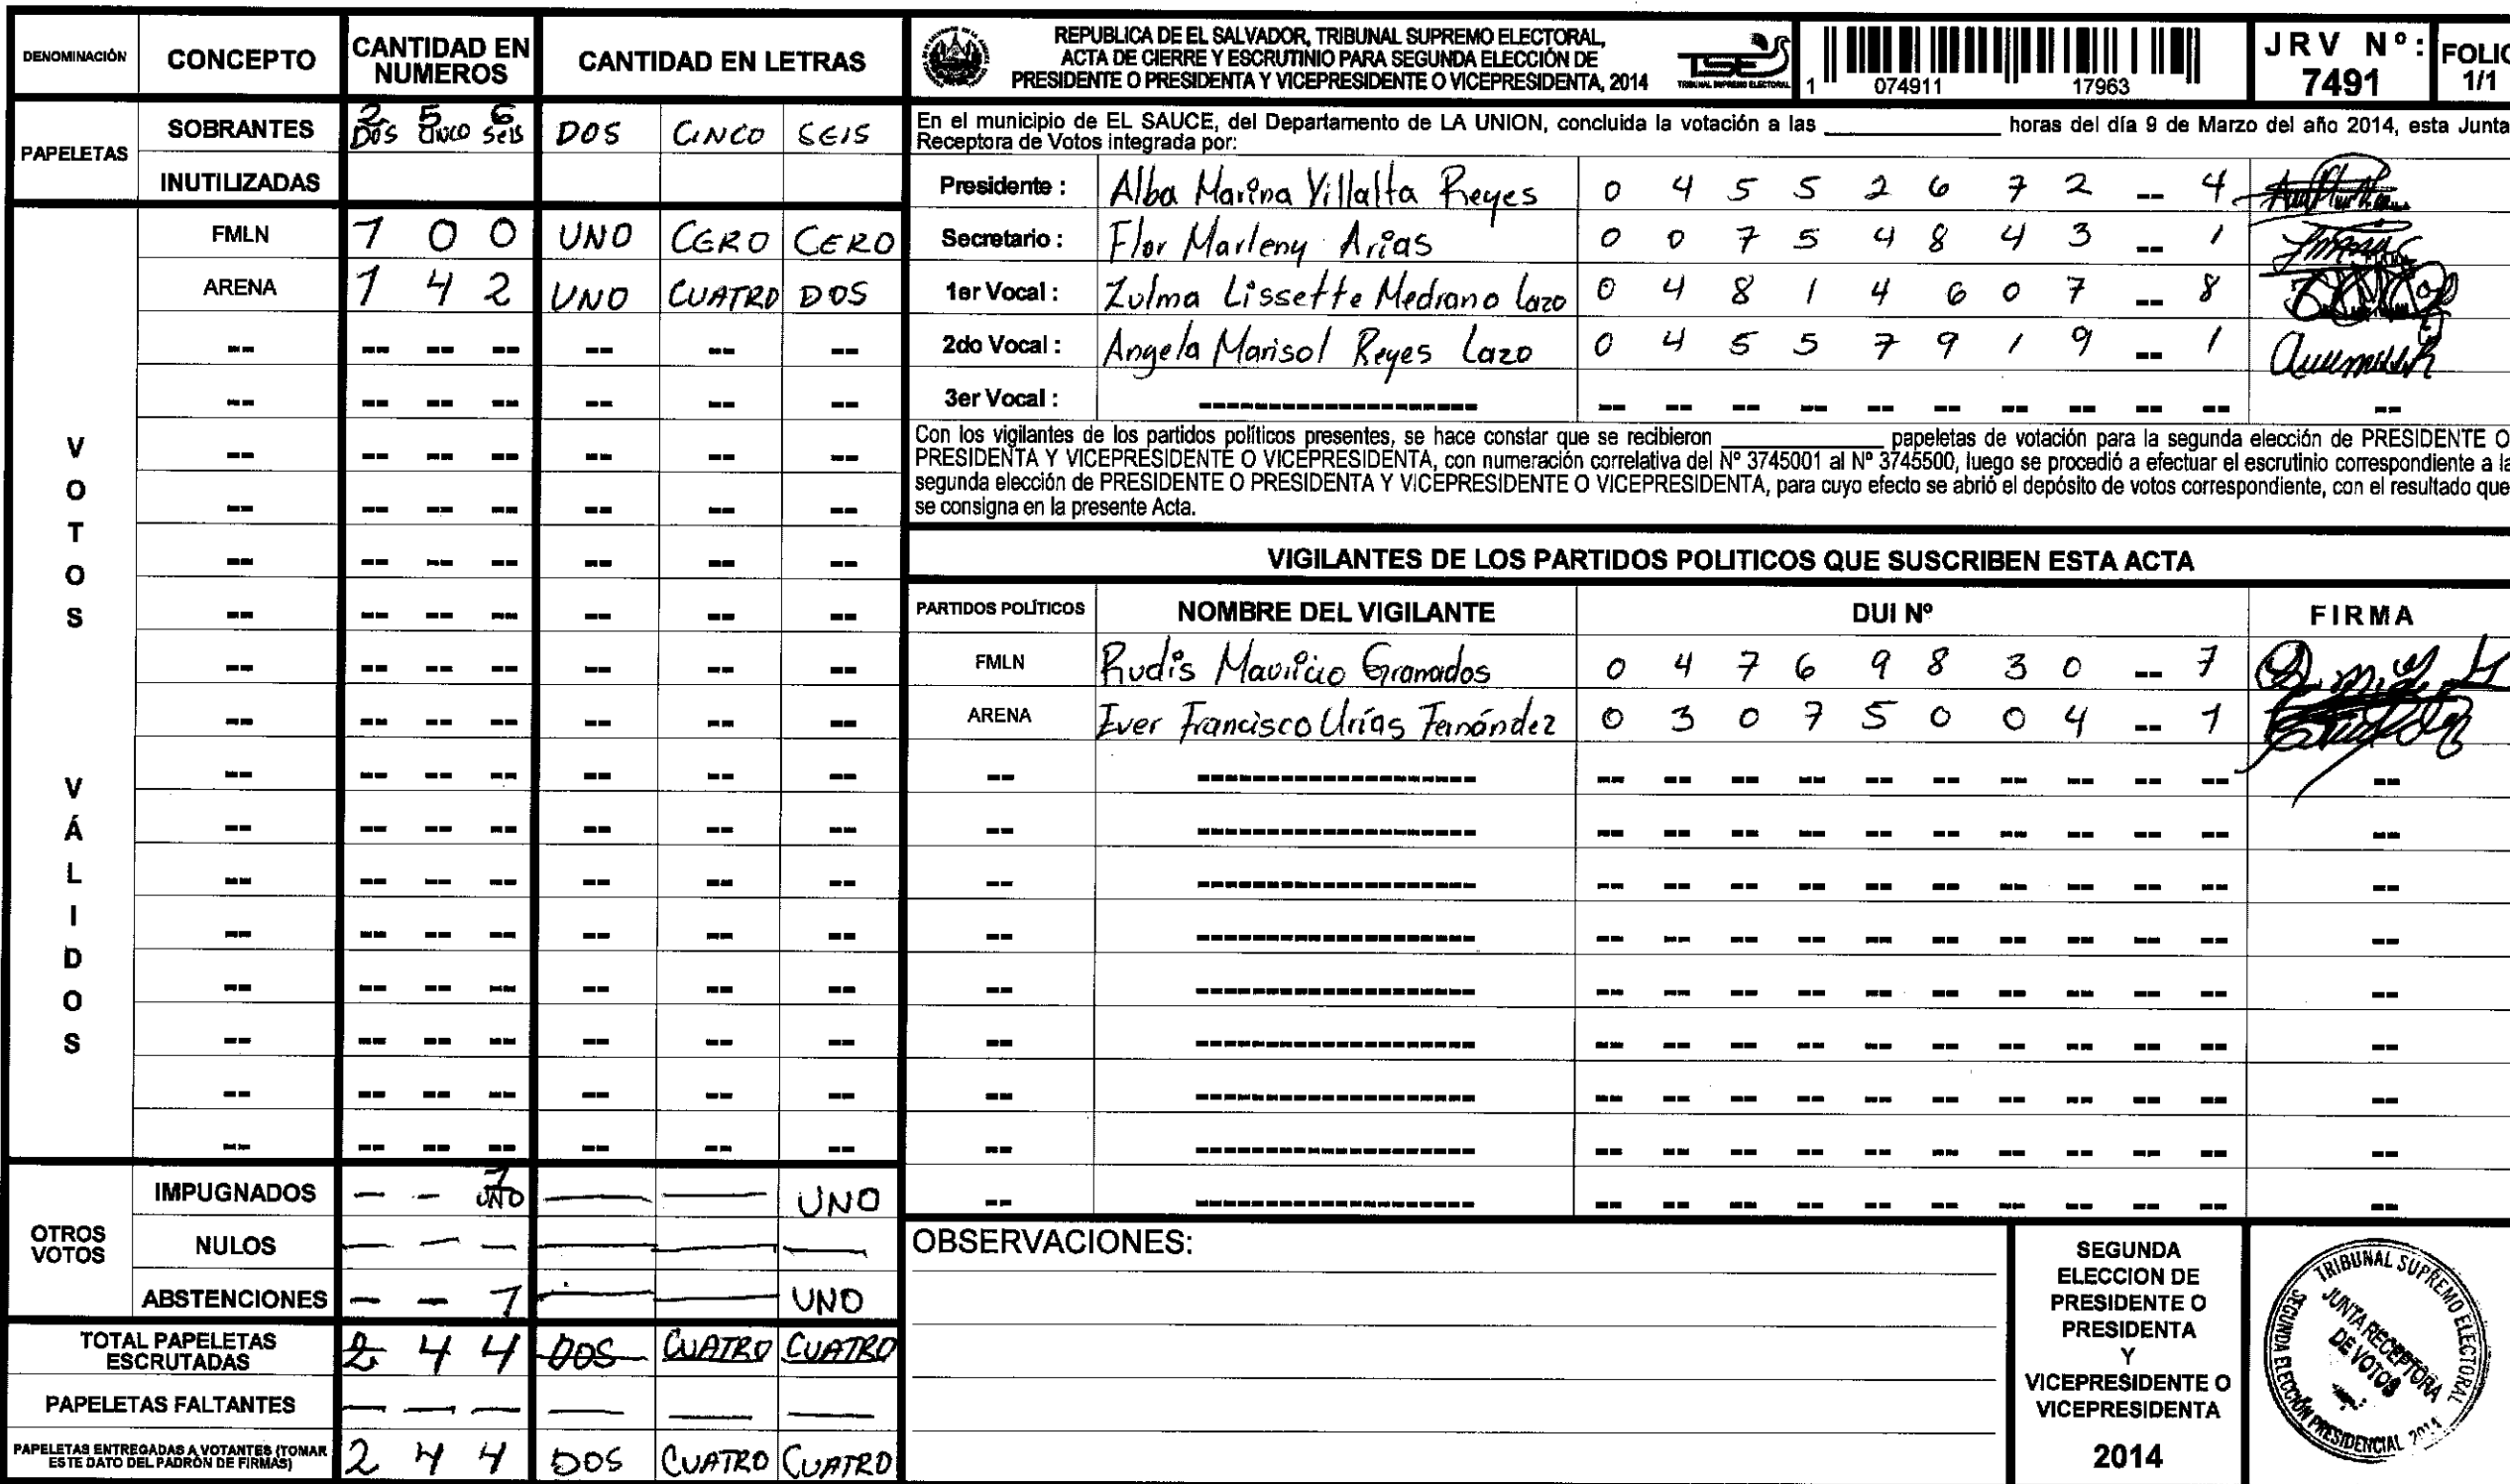 DENOMINACIÓN CONCEPTO CANTIDAD EN NUMEROS CANTIDAD EN LETRAS
PAPELETAS
SOBRANTES 2 5 6 DOS CINCO SEIS DOS CINCO SEIS
INUTILIZADAS
VOTOS VÁLIDOS
FMLN 1 0 0 UNO CERO CERO
ARENA 1 4 2 UNO CUATRO DOS
OTROS VOTOS
IMPUGNADOS — — 1 UNO — — UNO
NULOS — — — — — —
ABSTENCIONES — — 1 — — UNO
TOTAL PAPELETAS ESCRUTADAS 2 4 4 DOS CUATRO CUATRO
PAPELETAS FALTANTES — — — — — —
PAPELETAS ENTREGADAS A VOTANTES (TOMAR ESTE DATO DEL PADRÓN DE FIRMAS) 2 4 4 DOS CUATRO CUATRO
REPUBLICA DE EL SALVADOR, TRIBUNAL SUPREMO ELECTORAL,
ACTA DE CIERRE Y ESCRUTINIO PARA SEGUNDA ELECCIÓN DE
PRESIDENTE O PRESIDENTA Y VICEPRESIDENTE O VICEPRESIDENTA, 2014
TSE
TRIBUNAL SUPREMO ELECTORAL
1 074911 17963
JRV Nº: 7491
FOLIO 1/1
En el municipio de EL SAUCE, del Departamento de LA UNION, concluida la votación a las ____________ horas del día 9 de Marzo del año 2014, esta Junta
Receptora de Votos integrada por:
Presidente : Alba Marina Villalta Reyes 0 4 5 5 2 6 7 2 -- 4
Secretario : Flor Marleny Arias 0 0 7 5 4 8 4 3 -- 1
1er Vocal : Zulma Lissette Medrano Lazo 0 4 8 1 4 6 0 7 -- 8
2do Vocal : Angela Marisol Reyes Lazo 0 4 5 5 7 9 1 9 -- 1
3er Vocal :
Con los vigilantes de los partidos políticos presentes, se hace constar que se recibieron ____________ papeletas de votación para la segunda elección de PRESIDENTE O
PRESIDENTA Y VICEPRESIDENTE O VICEPRESIDENTA, con numeración correlativa del Nº 3745001 al Nº 3745500, luego se procedió a efectuar el escrutinio correspondiente a la
segunda elección de PRESIDENTE O PRESIDENTA Y VICEPRESIDENTE O VICEPRESIDENTA, para cuyo efecto se abrió el depósito de votos correspondiente, con el resultado que
se consigna en la presente Acta.
VIGILANTES DE LOS PARTIDOS POLITICOS QUE SUSCRIBEN ESTA ACTA
PARTIDOS POLÍTICOS NOMBRE DEL VIGILANTE DUI Nº FIRMA
FMLN Rudis Mauricio Granados 0 4 7 6 9 8 3 0 -- 7
ARENA Ever Francisco Urías Fernández 0 3 0 7 5 0 0 4 -- 1
OBSERVACIONES:
SEGUNDA
ELECCION DE
PRESIDENTE O
PRESIDENTA
Y
VICEPRESIDENTE O
VICEPRESIDENTA
2014
TRIBUNAL SUPREMO ELECTORAL
JUNTA RECEPTORA
DE VOTOS
SEGUNDA ELECCIÓN PRESIDENCIAL 2014